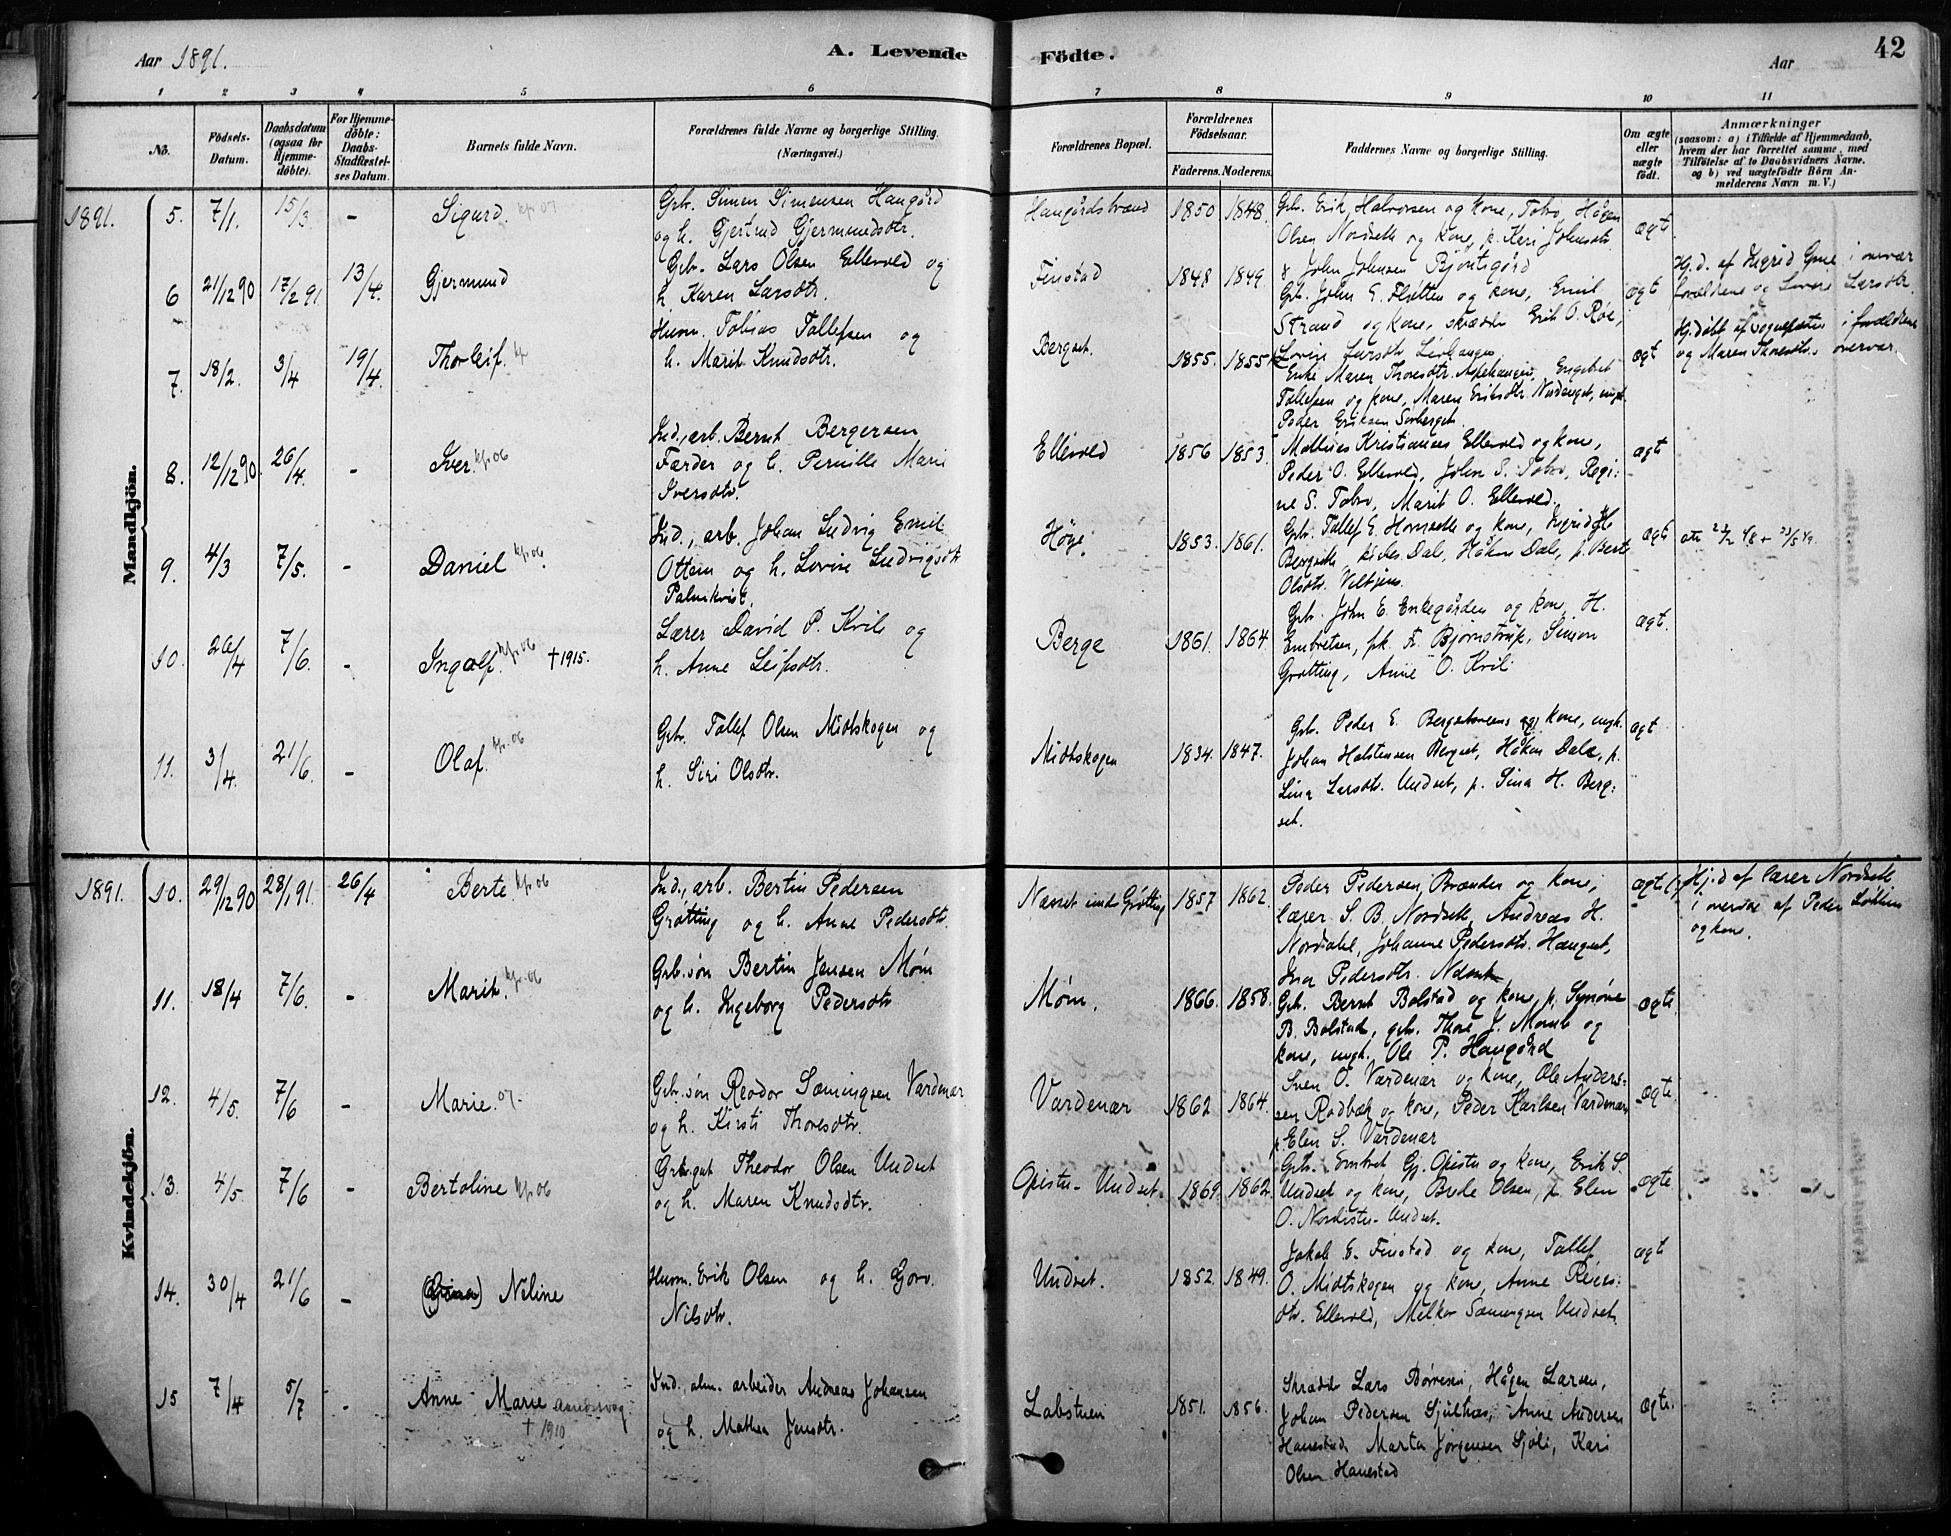 Aar 1891.
A. Levende Födte.
Aar
42
1 2 3 4 5 6 7 8 9 10 11
No.
Födsels-Datum.
Daabsdatum (ogsaa for Hjemme-døbte).
For Hjemme-døbte: Daabs-Stadfæstel-ses Datum.
Barnets fulde Navn.
Forældrenes fulde Navne og borgerlige Stilling. (Næringsvei.)
Forældrenes Bopæl.
Forældrenes Födselsaar.
Faderens. Moderens.
Faddernes Navne og borgerlige Stilling.
Om ægte eller uægte födt.
Anmærkninger
(saasom: a) i Tilfælde af Hjemmedaab, hvem der har forrettet samme, med Tilföielse af to Daabsvidners Navne, og b) ved uægtefödte Börn An-melderens Navn m. V.)
Mandkjön.
1891. 5. 7/1. 15/3 - Sigurd. kp. 07
Grb. Simen Simensen Haugård
og h. Gjertrud Gjermundsdtr.
Haugårdstrand 1850 1848.
Grb. Erik Halvorsen og kone, Tobro, Hågen
Olsen Nordsetle og kone, p. Kari Johnsdtr.
& John Johnsen Bjöntegård
ægt
6 21/12 90 17/2 91 13/4. Gjermund
Grb. Lars Olsen Ellevold og
h. Karen Larsdtr.
Finstad 1848 1849.
Grb. John E. Fløtten og kone, Emil
Strand og kone, skrædder Erik O. Röe,
Lovise Larsdtr.
ægt
Hj.d. af Ingrid i overvær
forældrene og Lovise Larsdtr.
7. 18/2. 3/4 19/4. Thorleif. kp
Husm. Tobias Tollefsen og
h. Marit Knudsdtr.
Bergset. 1855. 1855
Enke Maren Thoresdtr. Aspehaugen, Engebret
Tollefsen og kone, Maren Eriksdtr. Nordenget, ungk.
Peder Eriksen
ægt
Hj.döbt af sognepræsten i forældrene
og Maren Thoresdtrs overvær.
8. 12/12 90. 26/4. - Iver. kp. 06
Ind., arb. Bernt Bergersen
Færder og h. Pernille Marie
Iversdtr.
Ellevold 1856 1853.
Mathias Kristiansen Ellevold og kone,
Peder O. Ellevold, John S. Tobro, Regi:
ne S. Tobro, Marit O. Ellevold.
ægt
9. 4/3 7/5. - Daniel kp. 06.
Ind., arb. Johan Ludvig Emil
Ottern og h. Lovise Ludvigsdtr
Palmkvist.
Höye. 1853. 1861.
Grb. Tollef E. Hornsetle og kone, Ingrid H
Bergsetle, Dale, Håkon Dale, p. Berte
Olsdtr.
ægt
10. 26/4 7/6. - Ingolf. kp. 06 † 1915.
Lærer David P. Kvile og
h. Anne Leifsdtr.
Berge 1861. 1864
Grb. John E. Enkegården og kone, H.
Embretsen, frk. Bjørnstrup, Simon
Grøtting, Anne O. Kvil
ægt.
11. 3/4. 21/6. - Olaf. kp. 06
Grb. Tollef Olsen Midtskogen og
h. Siri Olsdtr.
Midtskogen 1834. 1847.
Grb. Peder E. og kone, ungk.
Johan Halstensen Bergset, Håkon Dale, p.
Lina Larsdtr. Undset, p. Sina H. Berg:
set.
ægt
Kvindekjön.
1891. 10. 29/12 90 28/1 91. 26/4 Berte. kp. 06
Ind., arb. Bertin Pedersen
Grøtting og h. Anne Pedersdtr.
Næsset under Gröttng 1857 1862.
Peder Pedersen Brænden og kone,
lærer S. B. Nordsetle, Andreas H.
Nordahl, Johanne Pedersdtr. Haugset,
Pedersdtr.
ægte
Hj.d af lærer Nordsetle
i overvær af Peder
og kone.
11. 18/4 7/6. - Marit. kp. 06
Grb.søn Bertin Jensen Möm
og h. Ingeborg Pedersdtr
Möm. 1866. 1858.
Grb. Bernt Bolstad og kone, p. Synöve
B. Bolstad, grb. Thore J. og
kone, ungk. Ole P. Haugård
ægte.
12. 4/5. 7/6 - Marie. 07.
Grb.søn Reodor Sæmingsen Vardenær
og h. Kirsti Thoresdtr.
Vardenær 1862 1864.
Sven O. Vardenær og kone, Ole Anders:
sen Rødbæk og kone, Peder Karlsen Vardenær
p. Elen S. Vardenær
ægte.
13. 4/5 7/6 - Bertoline kp. 06
Theodor Olsen Undset
og h. Maren Knudsdtr.
Opistu-Undset. 1869. 1862.
Grb. Embret Gj. Opistu og kone, Erik S.
Undset og kone, Brede Olsen, p. Elen
O. Nordistu-Undset.
ægte
14. 30/4 21/6 - Neline
Husm. Erik Olsen og h. Gjoro
Nilsdtr.
Undset. 1852. 1849.
Jakob E. Finstad og kone, Tollef
O. Midtskogen og kone, Anne Peders:
dtr. Ellevold, Melkor Sæmingsen Undset.
ægt
15 7/4 5/7 - Anne Marie
† 1910
Ind., alm. arbeider Andreas Johansen
og h. Mathea Jensdtr.
Labstuen 1851. 1856.
Skrædder Lars Börresen, Hågen Larsen,
Johan Pedersen Sjulhus, Anne Andersen
Hanestad Marta Jørgensen Sjöli, Kari
Olsen Hanestad
ægte.